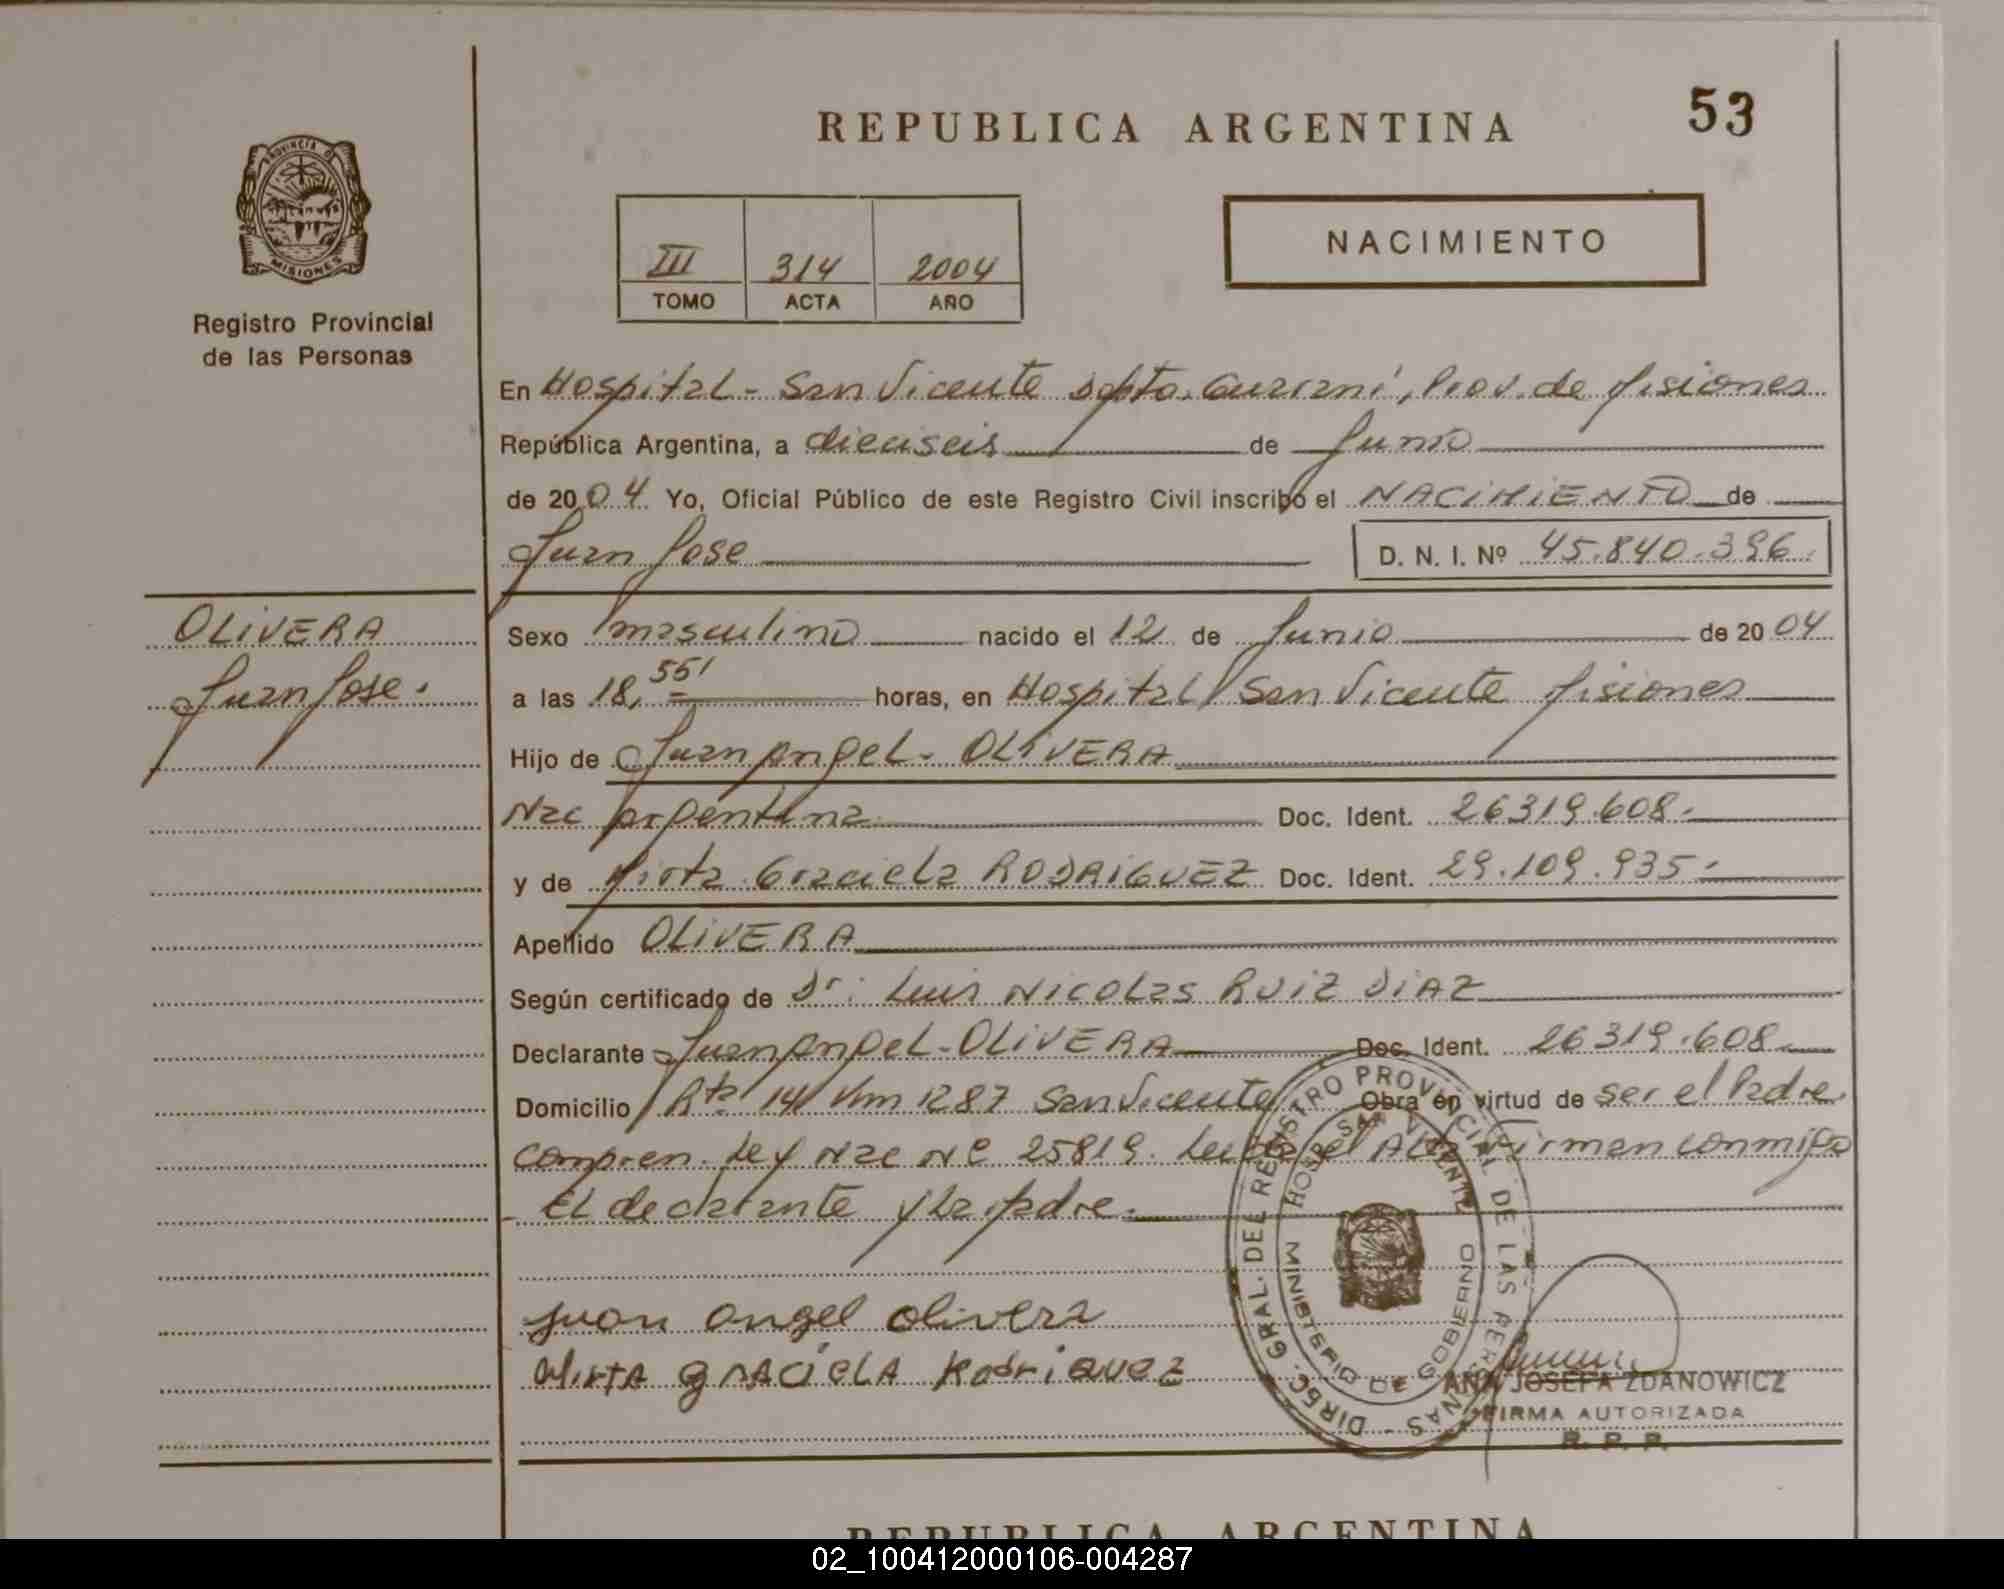 REPUBLICA ARGENTINA
53
PROVINCIA DE
MISIONES
Registro Provincial
de las Personas
III 314 2004
TOMO ACTA AÑO
NACIMIENTO
En Hospital - San Vicente Dpto. Guarani, Prov. de Misiones
República Argentina, a dieciseis de Junio
de 2004 Yo, Oficial Público de este Registro Civil inscribo el NACIMIENTO de
Juan Jose D. N. I. Nº 45.840.396.
OLIVERA
Juan Jose.
Sexo masculino nacido el 12 de Junio de 2004
a las 18,55' horas, en Hospital San Vicente Misiones
Hijo de Juan Angel - OLIVERA
Nac Argentina Doc. Ident. 26319.608.
y de Mirta Graciela RODRIGUEZ Doc. Ident. 29.109.935.
Apellido OLIVERA
Según certificado de Dr: Luis Nicolas RUIZ DIAZ
Declarante Juan Angel - OLIVERA Doc. Ident. 26319.608
Domicilio Rta 14 Km 1287 San Vicente Obra en virtud de ser el Padre.
Compren. Ley Nac Nº 25819. Leida el Acta Firman conmigo
El declarante y la Madre.
Juan angel olivera
Mirta graciela Rodriguez
DIREC. GRAL. DEL REGISTRO PROVINCIAL DE LAS PERSONAS
HOSP. SAN VICENTE
MINISTERIO DE GOBIERNO
ANA JOSEFA ZDANOWICZ
FIRMA AUTORIZADA
R. P. P.
REPUBLICA ARGENTINA
02_100412000106-004287